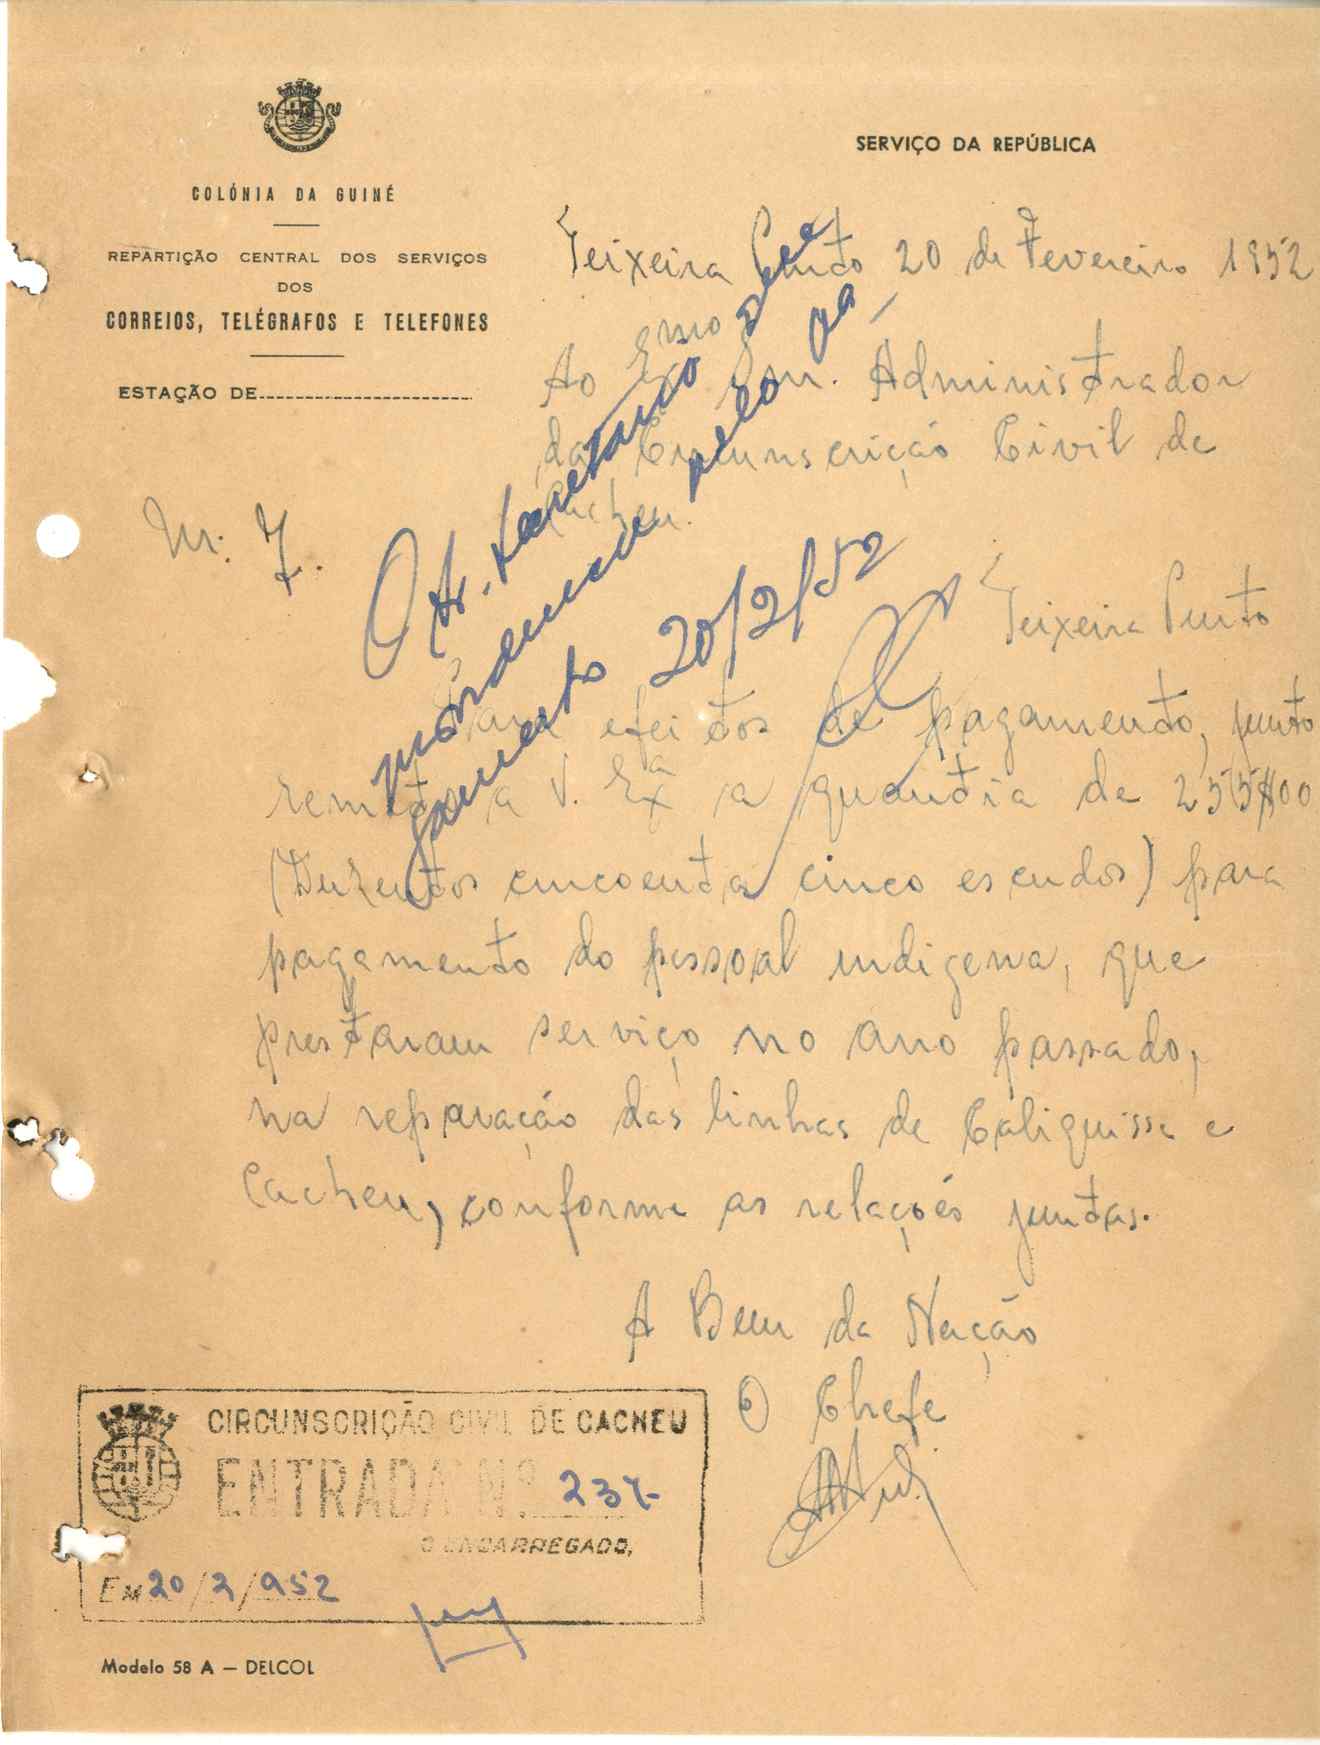 COLÓNIA DA GUINÉ
REPARTIÇÃO CENTRAL DOS SERVIÇOS
DOS
CORREIOS, TELÉGRAFOS E TELEFONES
ESTAÇÃO DE
SERVIÇO DA REPÚBLICA
Teixeira Pinto 20 de Fevereiro 1952
Ao Exmo Snr. Administrador
da Circunscrição Civil de
Cacheu.
Nr. 7.
Teixeira Pinto
O Sr. Secretário
pelo
20/2/52
Para efeitos de pagamento, junto
remeto a V. Exª a quantia de 255$00
(Duzentos cincoenta cinco escudos) para
pagamento do pessoal indigena, que
prestaram serviço no ano passado,
na reparação das linhas de Caliquisse e
Cacheu, conforme as relações juntas.
A Bem da Nação
O Chefe
CIRCUNSCRIÇÃO CIVIL DE CACHEU
ENTRADA N.º 237
O ENCARREGADO,
EM 20/2/952
Modelo 58 A — DELCOL